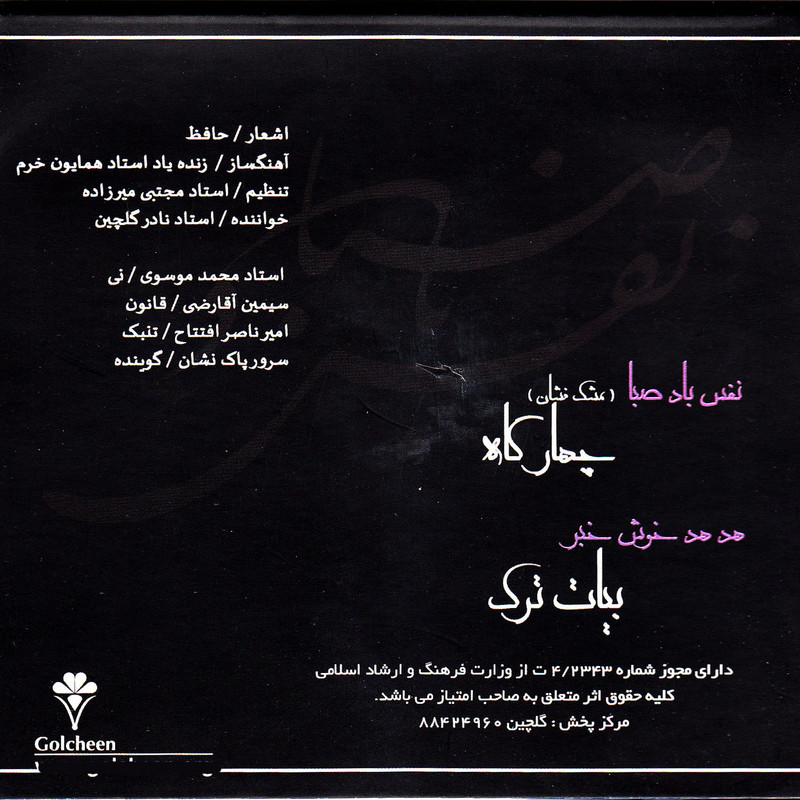 اشعار / حافظ
آهنگساز / زنده یاد استاد همایون خرم
تنظیم / استاد مجتبی میرزاده
خواننده / استاد نادر گلچین
استاد محمد موسوی / نی
سیمین آقارضی / قانون
امیر ناصر افتتاح / تنبک
سرور پاک نشان / گوینده
نفس باد صبا (مشک فشان)
چهارگاه
هد هد خوش خبر
بیات ترک
دارای مجوز شماره ۴/۲۳۴۳ ت از وزارت فرهنگ و ارشاد اسلامی
کلیه حقوق اثر متعلق به صاحب امتیاز می باشد.
مرکز پخش : گلچین ۸۸۴۲۴۹۶۰
Golcheen